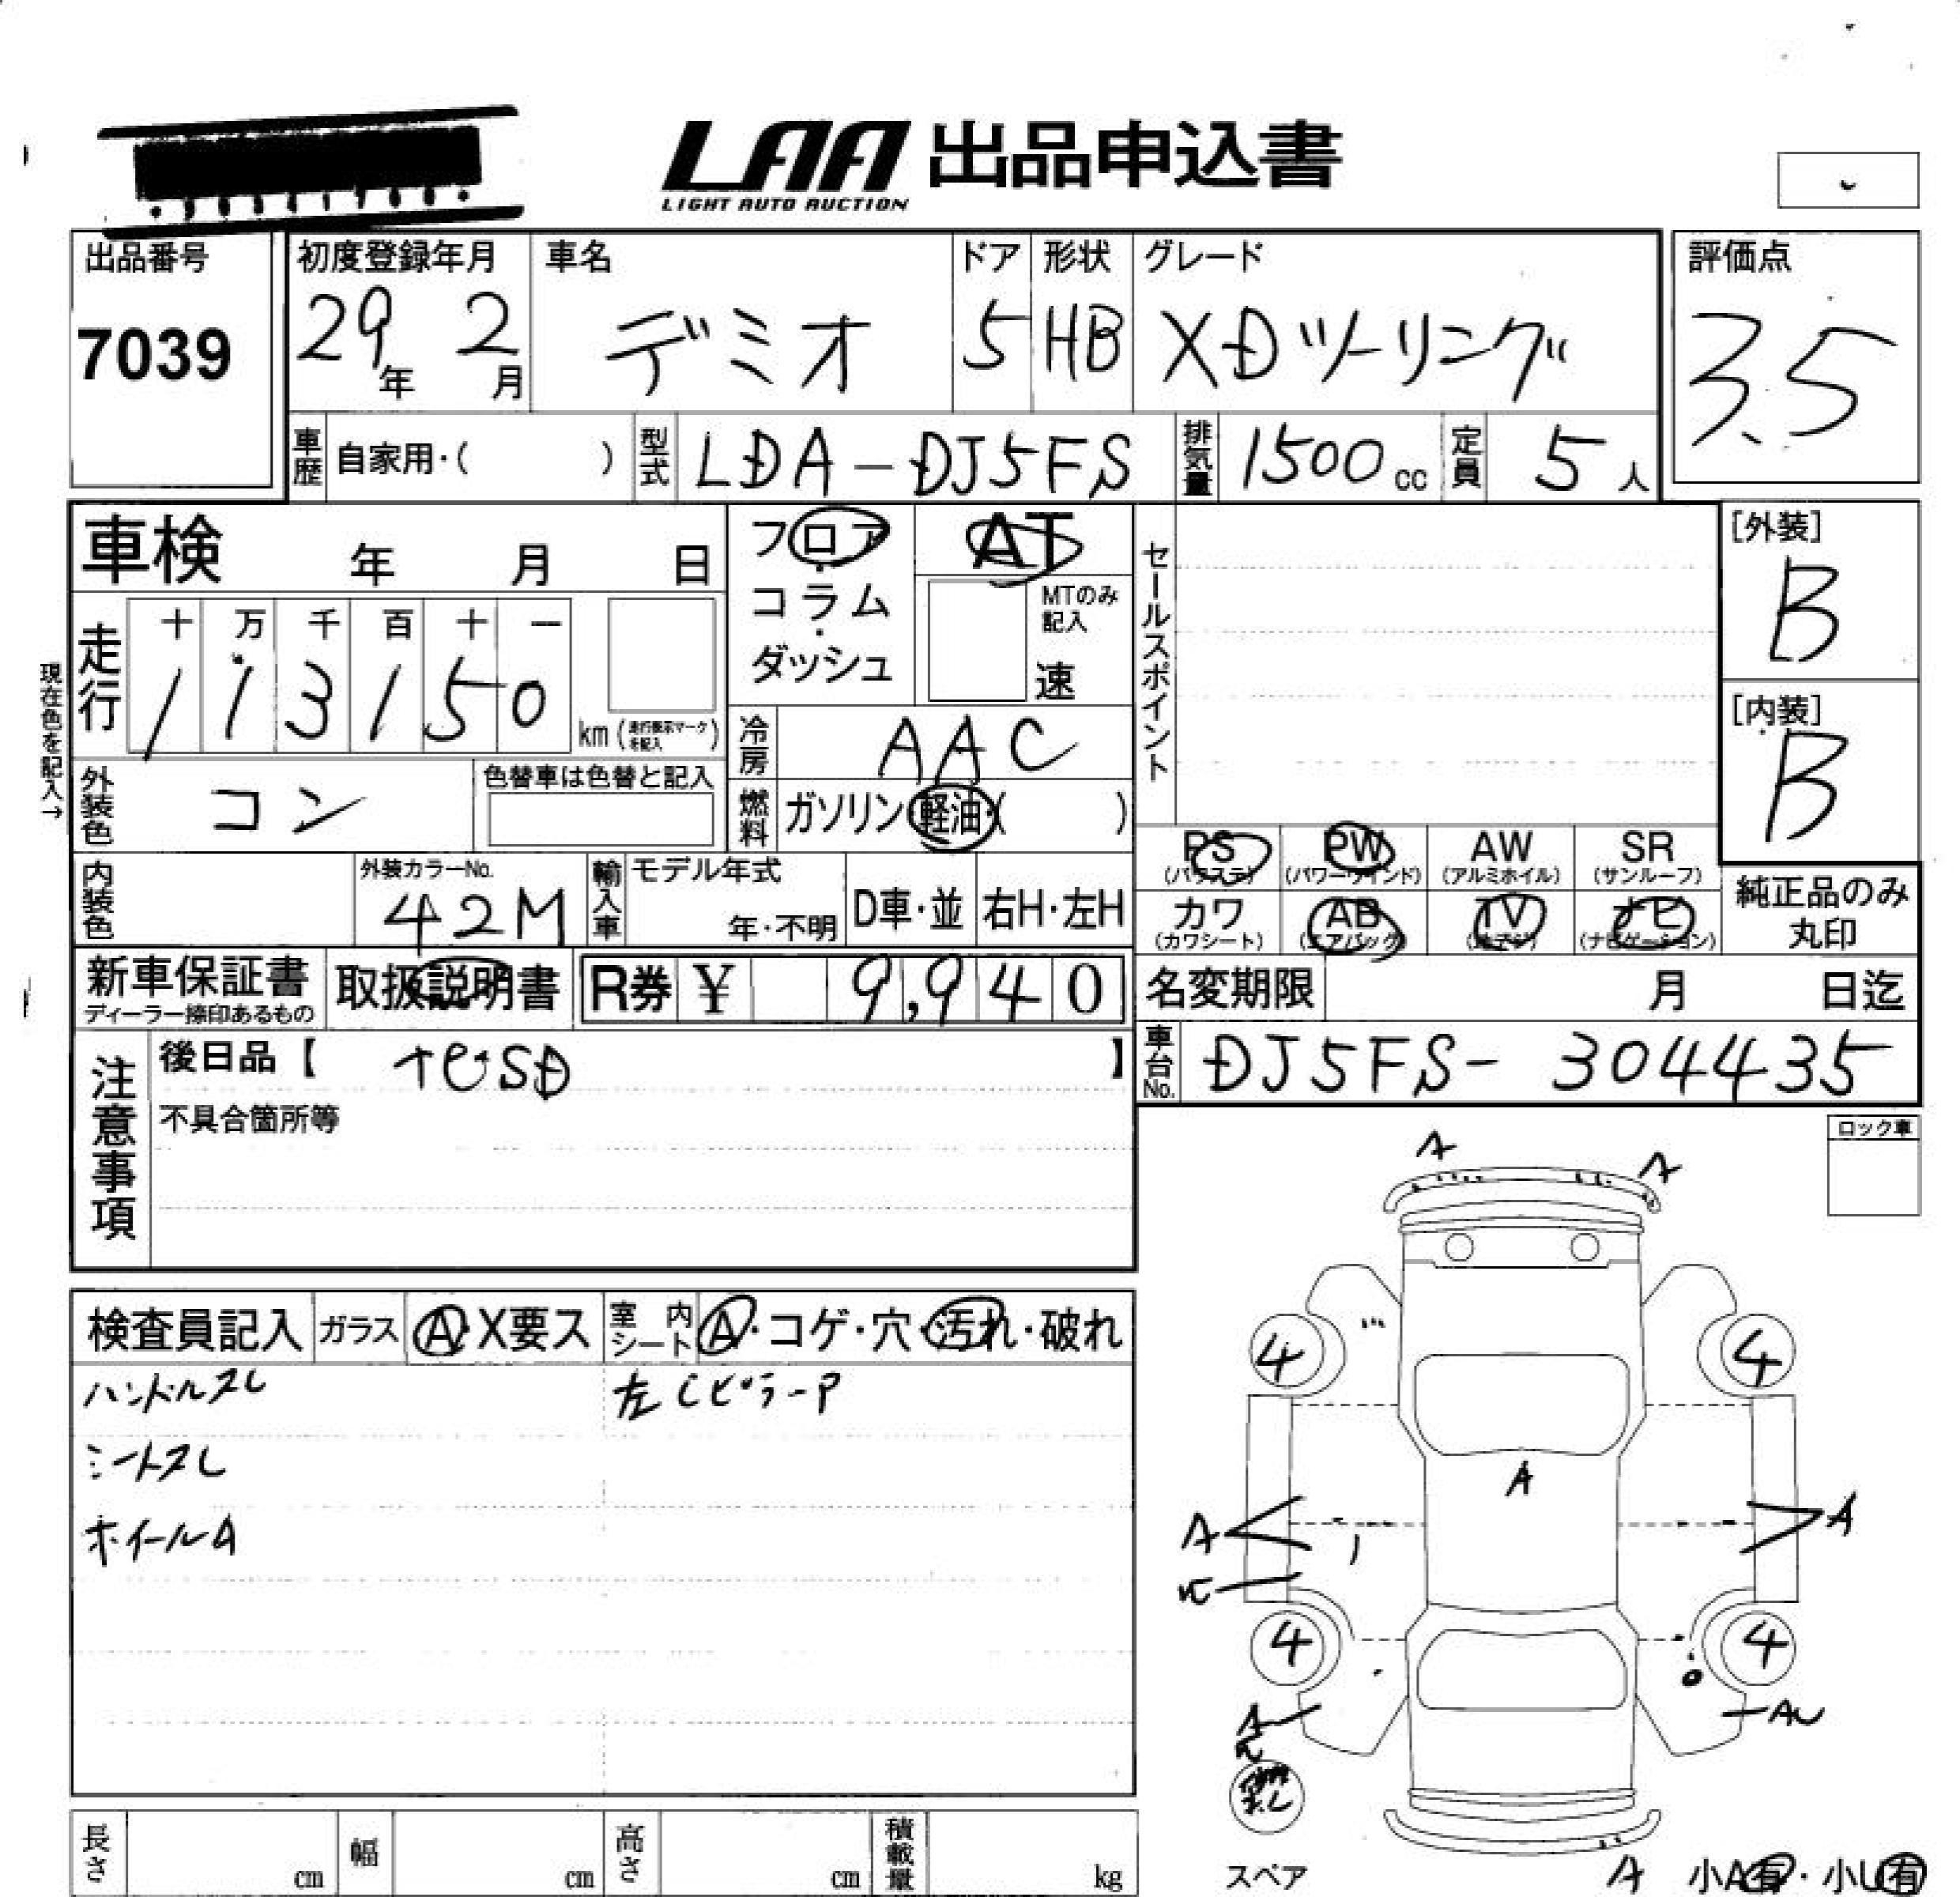 LAA 出品申込書
LIGHT AUTO AUCTION
出品番号
7039
初度登録年月
29年 2月
車名
デミオ
ドア
5
形状
HB
グレード
XDツーリング
評価点
3.5
車歴 自家用・( )
型式 LDA-DJ5FS
排気量 1500cc
定員 5人
車検 年 月 日
フロア・コラム・ダッシュ
AT
MTのみ記入
速
セールスポイント
[外装]
B
[内装]
B
現在色を記入→
走行
十 万 千 百 十 一
1 1 3 1 5 0
km (走行表示マークを記入)
冷房 AAC
外装色 コン
色替車は色替と記入
燃料 ガソリン・軽油・( )
PS (パワステ) PW (パワーウインド) AW (アルミホイル) SR (サンルーフ)
カワ (カワシート) AB (エアバッグ) TV (地デジ) ナビ (ナビゲーション)
純正品のみ丸印
内装色
外装カラーNo.
42M
輸入車
モデル年式
年・不明
D車・並
右H・左H
新車保証書
ディーラー捺印あるもの
取扱説明書
R券 ¥ 9,940
名変期限 月 日迄
車台No. DJ5FS-304435
注意事項
後日品【 ナビSD 】
不具合箇所等
ロック車
検査員記入
ガラス A・X要ス
室内シート A・コゲ・穴・汚れ・破れ
ハンドルスレ
左CピラーP
シートスレ
ホイールA
A
A
4
4
A
A
A
4
4
A
AU
スペア
A
小A有・小U有
長さ cm
幅 cm
高さ cm
積載量 kg